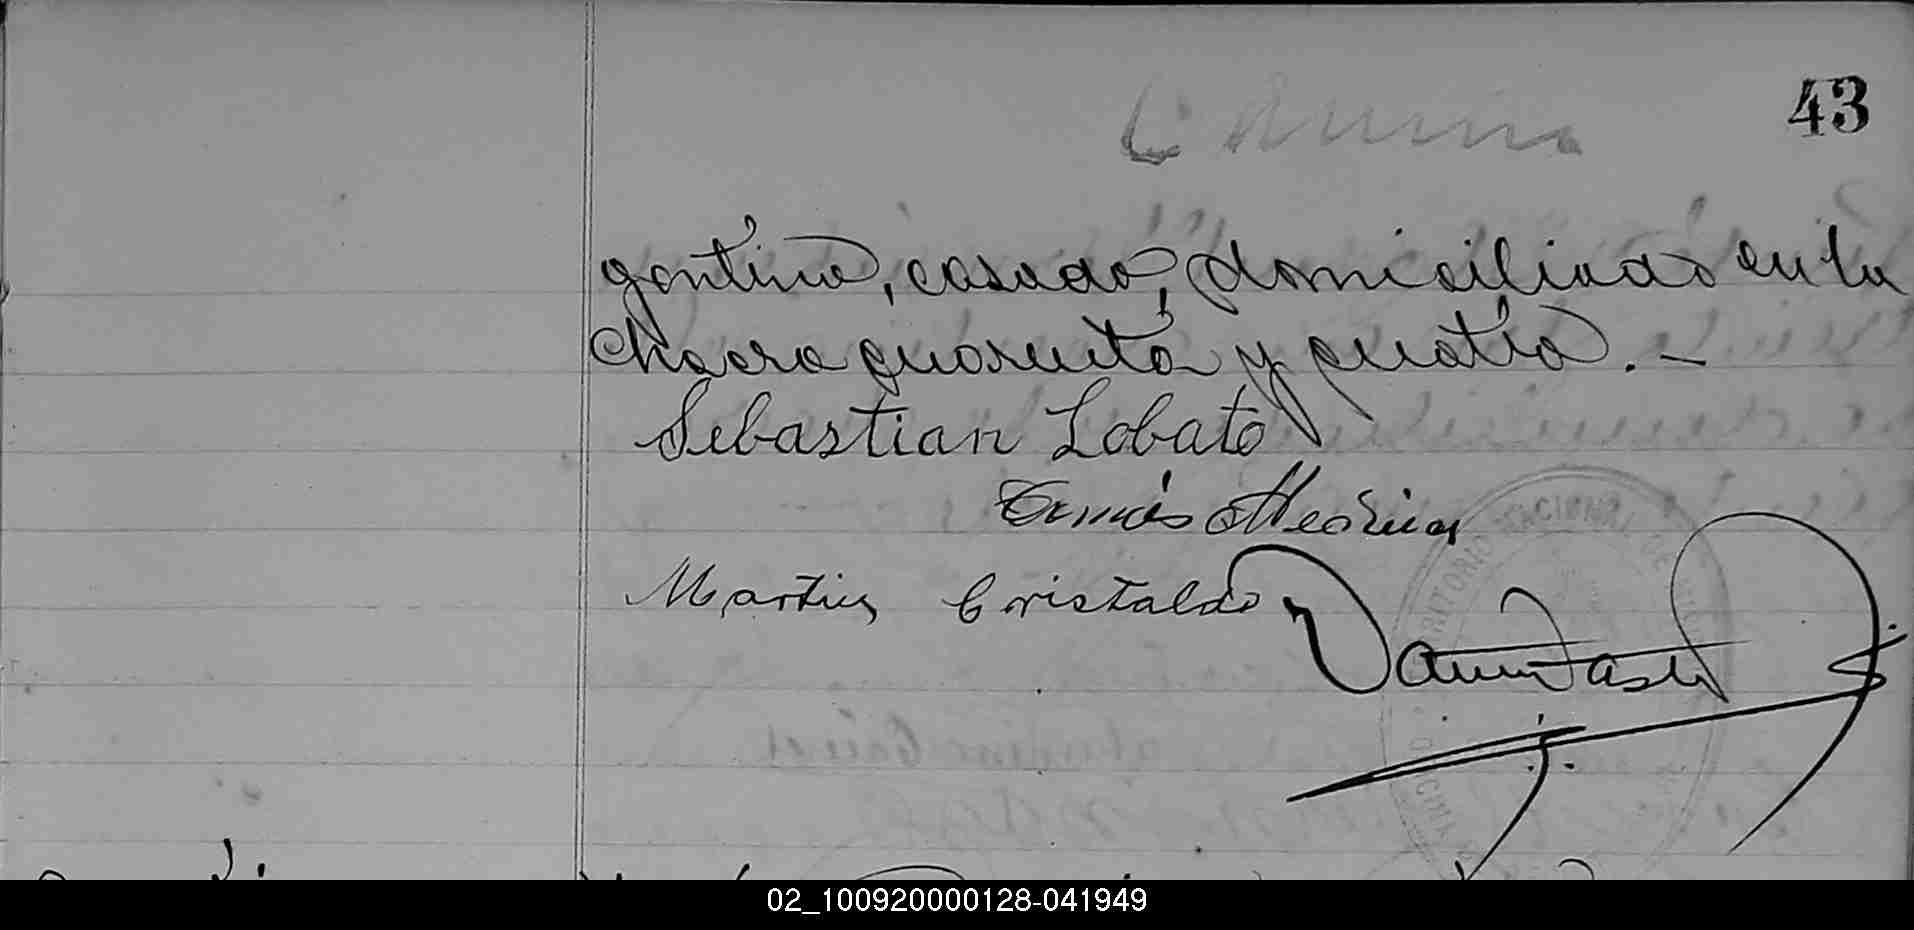 43
gentino, casado, domiciliado en la
chacra cuarenta y cuatro. —
Sebastian Lobato
Tomás Medina
Martin Cristaldo
TERRITORIO NACIONAL DE
02_100920000128-041949